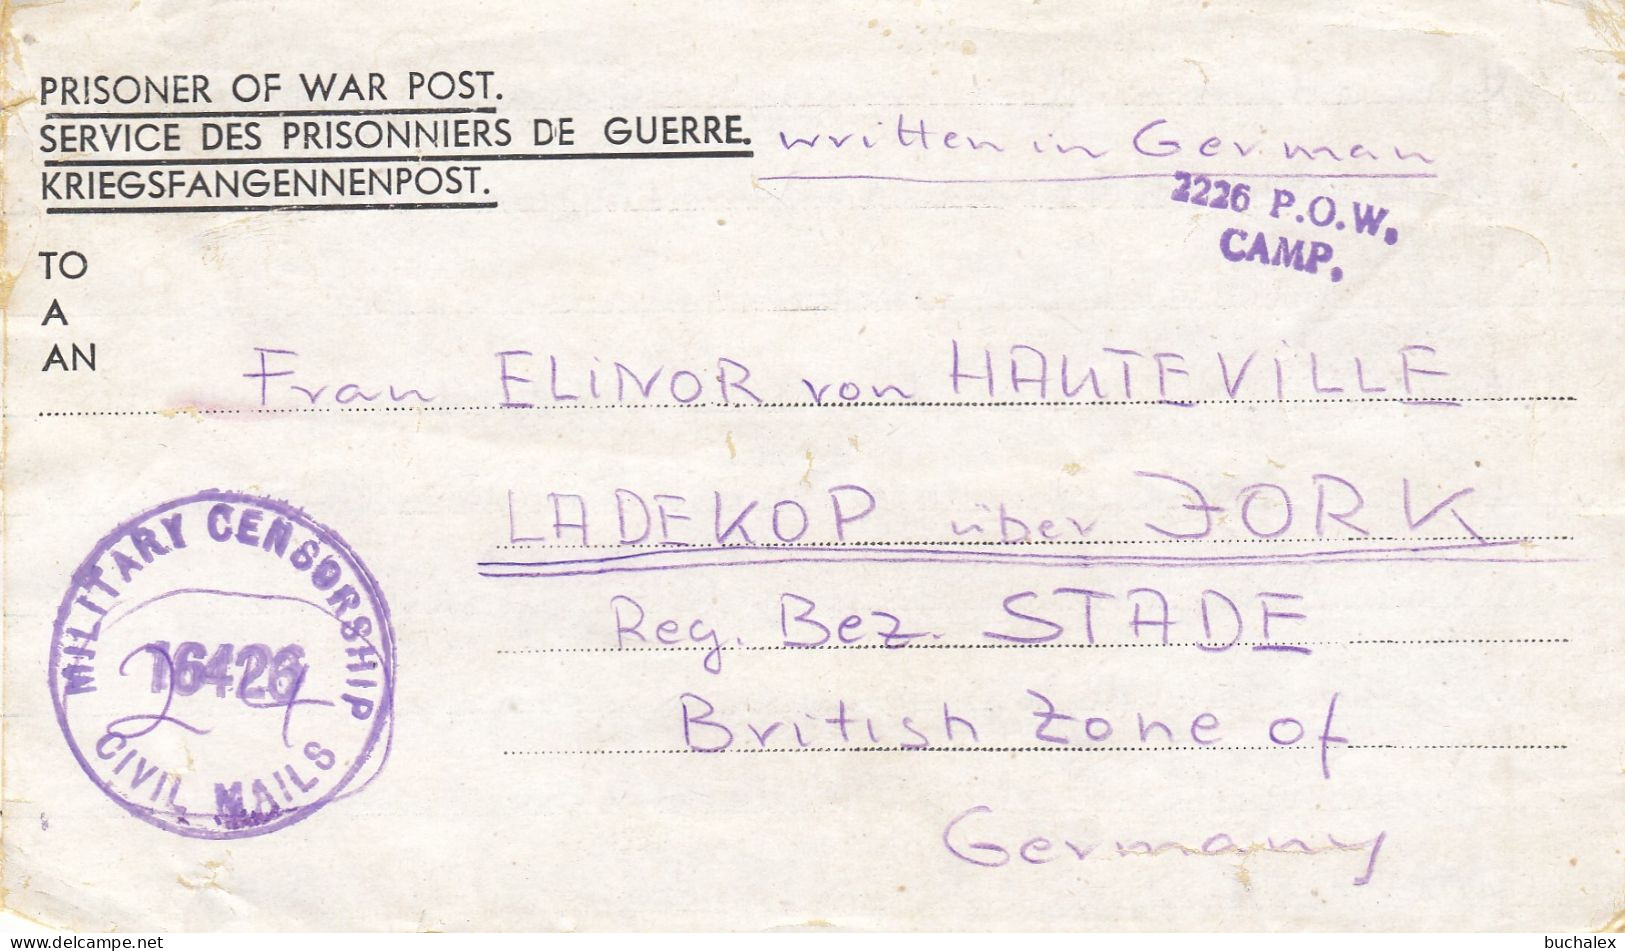 PRISONER OF WAR POST.
SERVICE DES PRISONNIERS DE GUERRE. written in German
KRIEGSFANGENNENPOST.
2226 P.O.W.
CAMP.
TO
A
AN
Frau ELINOR von HAUTEVILLE
LADEKOP über JORK
Reg. Bez. STADE
British Zone of
Germany
MILITARY CENSORSHIP
16426
24
CIVIL MAILS
www.delcampe.net
buchalex